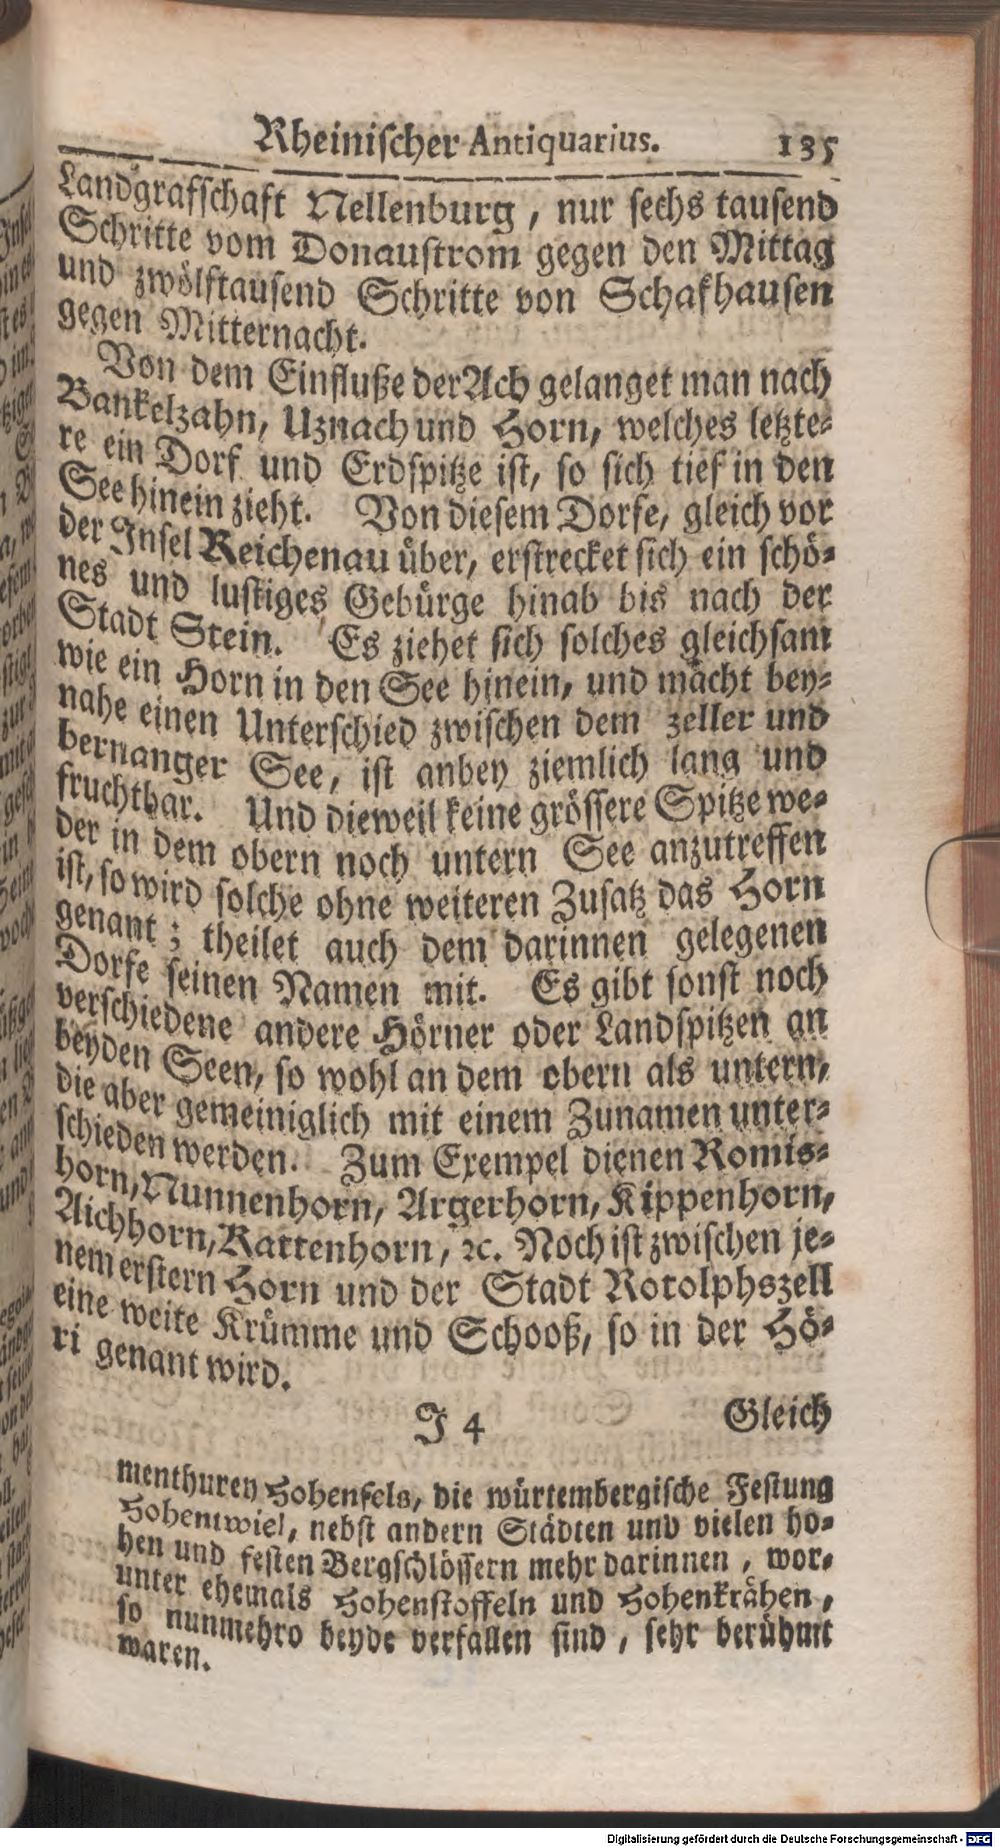 Rheinischer Antiquarius. 135
Landgrafschaft Nellenburg, nur sechs tausend
Schritte vom Donaustrom gegen den Mittag
und zwölftausend Schritte von Schafhausen
gegen Mitternacht.
Von dem Einfluße der Ach gelanget man nach
Bankelzahn, Uznach und Horn, welches letzte-
re ein Dorf und Erdspitze ist, so sich tief in den
See hinein zieht. Von diesem Dorfe, gleich vor
der Insel Reichenau über, erstrecket sich ein schö-
nes und lustiges Gebürge hinab bis nach der
Stadt Stein. Es ziehet sich solches gleichsam
wie ein Horn in den See hinein, und macht bey-
nahe einen Unterschied zwischen dem zeller und
bernanger See, ist anbey ziemlich lang und
fruchtbar. Und dieweil keine grössere Spitze we-
der in dem obern noch untern See anzutreffen
ist, so wird solche ohne weiteren Zusatz das Horn
genant; theilet auch dem darinnen gelegenen
Dorfe seinen Namen mit. Es gibt sonst noch
verschiedene andere Hörner oder Landspitzen an
beyden Seen, so wohl an dem obern als untern,
die aber gemeiniglich mit einem Zunamen unter-
schieden werden. Zum Exempel dienen Romis-
horn, Nunnenhorn, Argerhorn, Kippenhorn,
Aichhorn, Kattenhorn, ꝛc. Noch ist zwischen je-
nem erstern Horn und der Stadt Rotolphszell
eine weite Krümme und Schooß, so in der Hö-
ri genant wird.
J 4 Gleich
menthurey Hohenfels, die würtembergische Festung
Hohentwiel, nebst andern Städten und vielen ho-
hen und festen Bergschlössern mehr darinnen, wor-
unter ehemals Hohenstoffeln und Hohenkrähen,
so nunmehro beyde verfallen sind, sehr berühmt
waren.
Digitalisierung gefördert durch die Deutsche Forschungsgemeinschaft - DFG